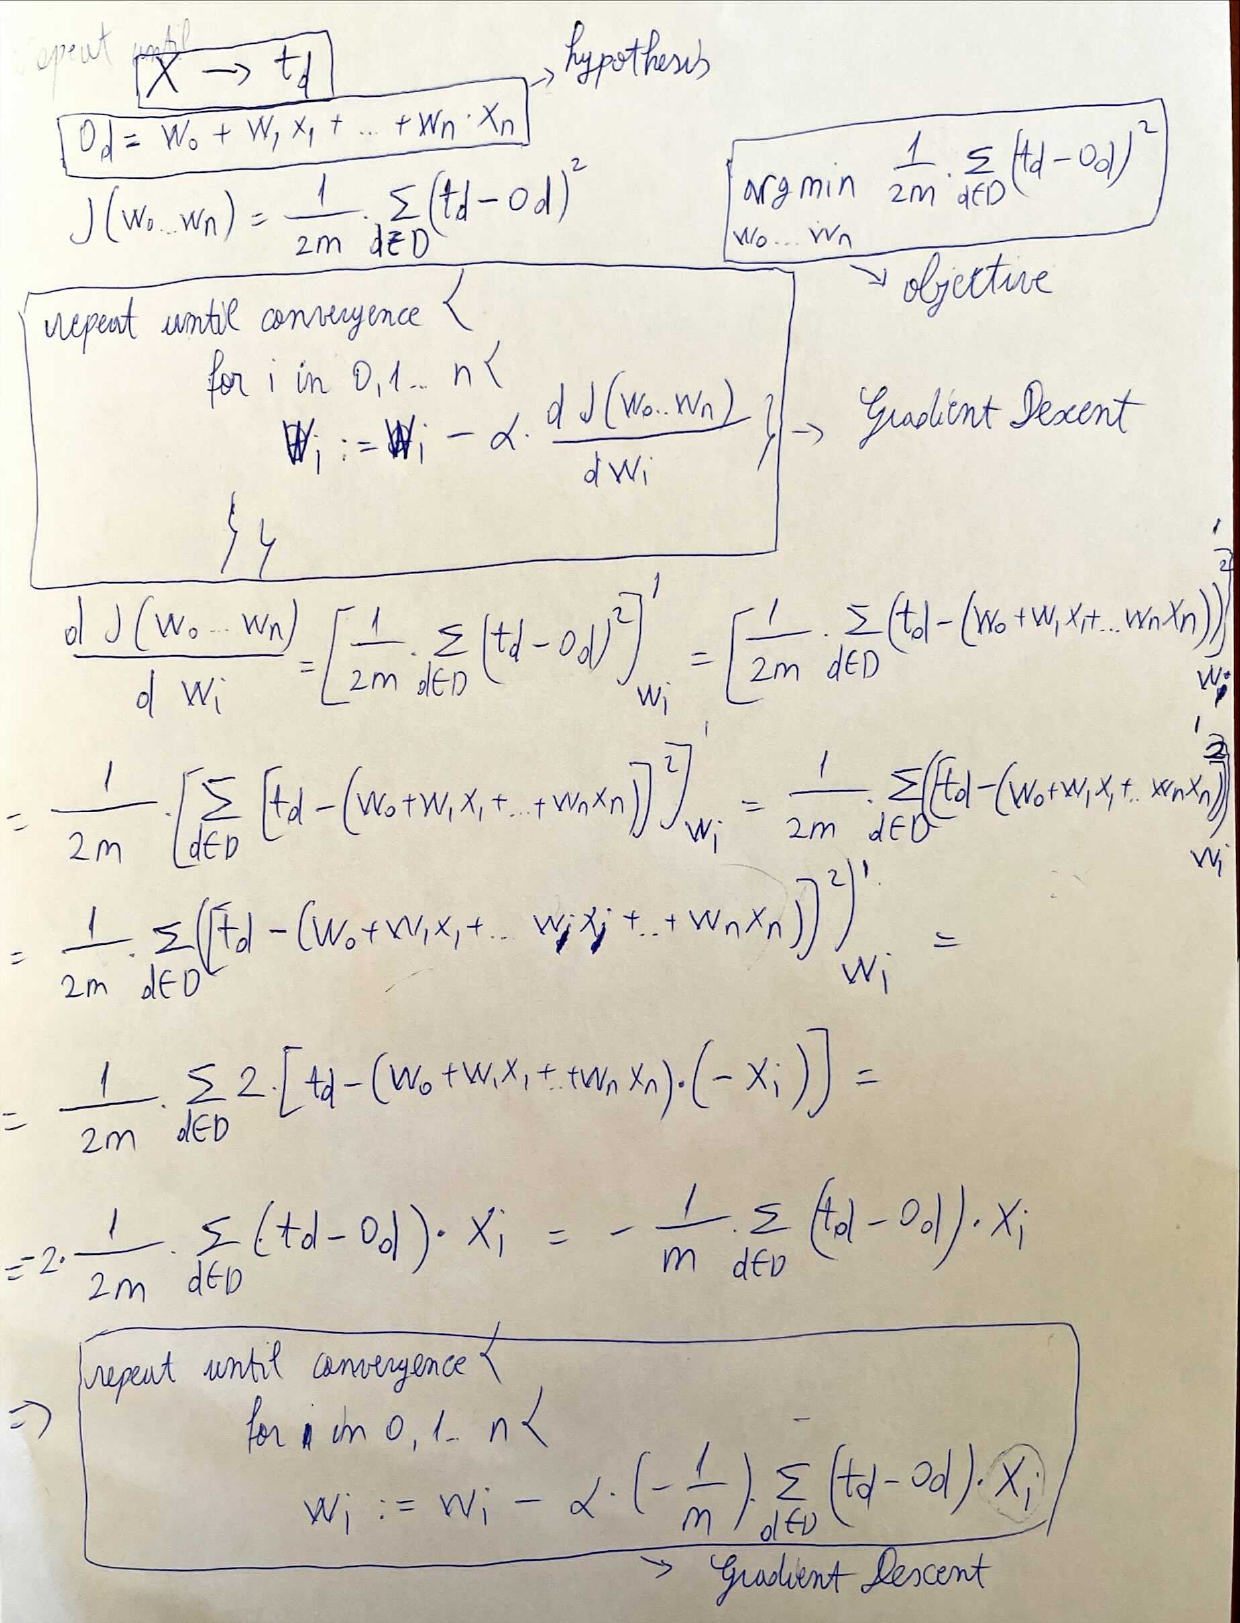 repeat until
X → t_d
→ hypothesis
O_d = w₀ + w₁ x₁ + ... + wn · xn
J(w₀...wn) = 1/2m · Σ_{d∈D} (t_d - O_d)²
argmin_{w₀...wn} 1/2m · Σ_{d∈D} (t_d - O_d)²
→ objective
repeat until convergence {
for i in 0,1... n {
Wi := Wi - α · d J(w₀..wn) / d wi }
→ Gradient Descent
} }
d J(w₀...wn) / d wi = [1/2m · Σ_{d∈D} (t_d - O_d)²]'_{wi} = [1/2m · Σ_{d∈D} (t_d - (w₀+w₁x₁+...wnxn))²]'_{wi}
= 1/2m · [Σ_{d∈D} [t_d - (w₀+w₁x₁+...+wnxn)]²]'_{wi} = 1/2m · Σ_{d∈D} ([t_d - (w₀+w₁x₁+.. wnxn)]²)'_{wi}
= 1/2m · Σ_{d∈D} ([t_d - (w₀+w₁x₁+... wjxj +..+ wnxn)]²)'_{wi} =
= 1/2m · Σ_{d∈D} 2·[t_d - (w₀+w₁x₁+..+wn xn)·(-xi)] =
= 2· 1/2m · Σ_{d∈D} (t_d - O_d) · xi = - 1/m · Σ_{d∈D} (t_d - O_d) · xi
⇒ repeat until convergence {
for i in 0,1... n {
wi := wi - α · (-1/m) · Σ_{d∈D} (t_d - O_d) · xi
→ Gradient Descent